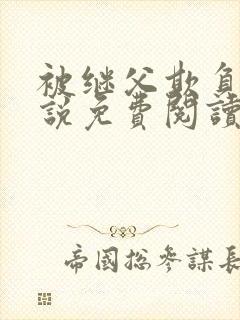 被继父欺负
說免費閱讀
帝國総参謀長